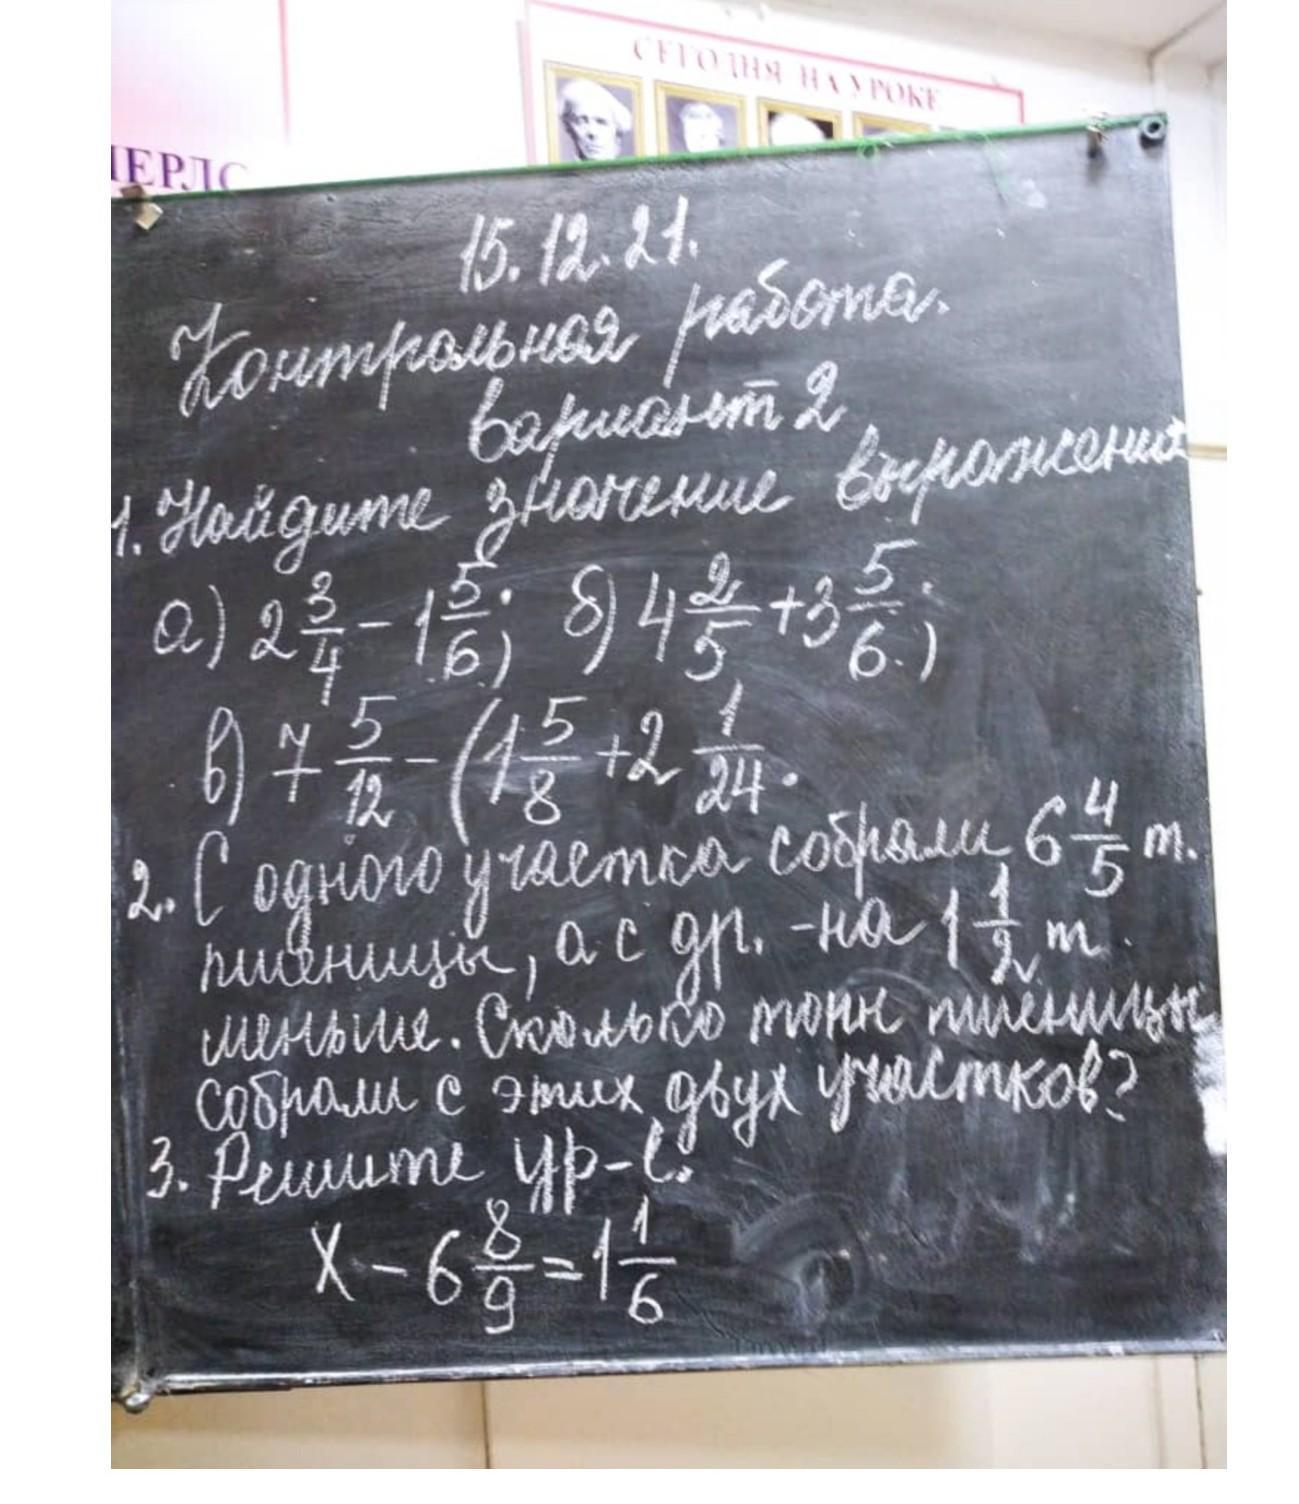 СЕГОДНЯ НА УРОКЕ
15.12.21.
Контрольная работа.
Вариант 2
1. Найдите значение выражений
а) 2 3/4 - 1 5/6; б) 4 2/5 + 3 5/6;
в) 7 5/12 - (1 5/8 + 2 1/24.
2. С одного участка собрали 6 4/5 т.
пшеницы, а с др. - на 1 1/2 т
меньше. Сколько тонн пшеницы
собрали с этих двух участков?
3. Решите ур-е.
x - 6 8/9 = 1 1/6